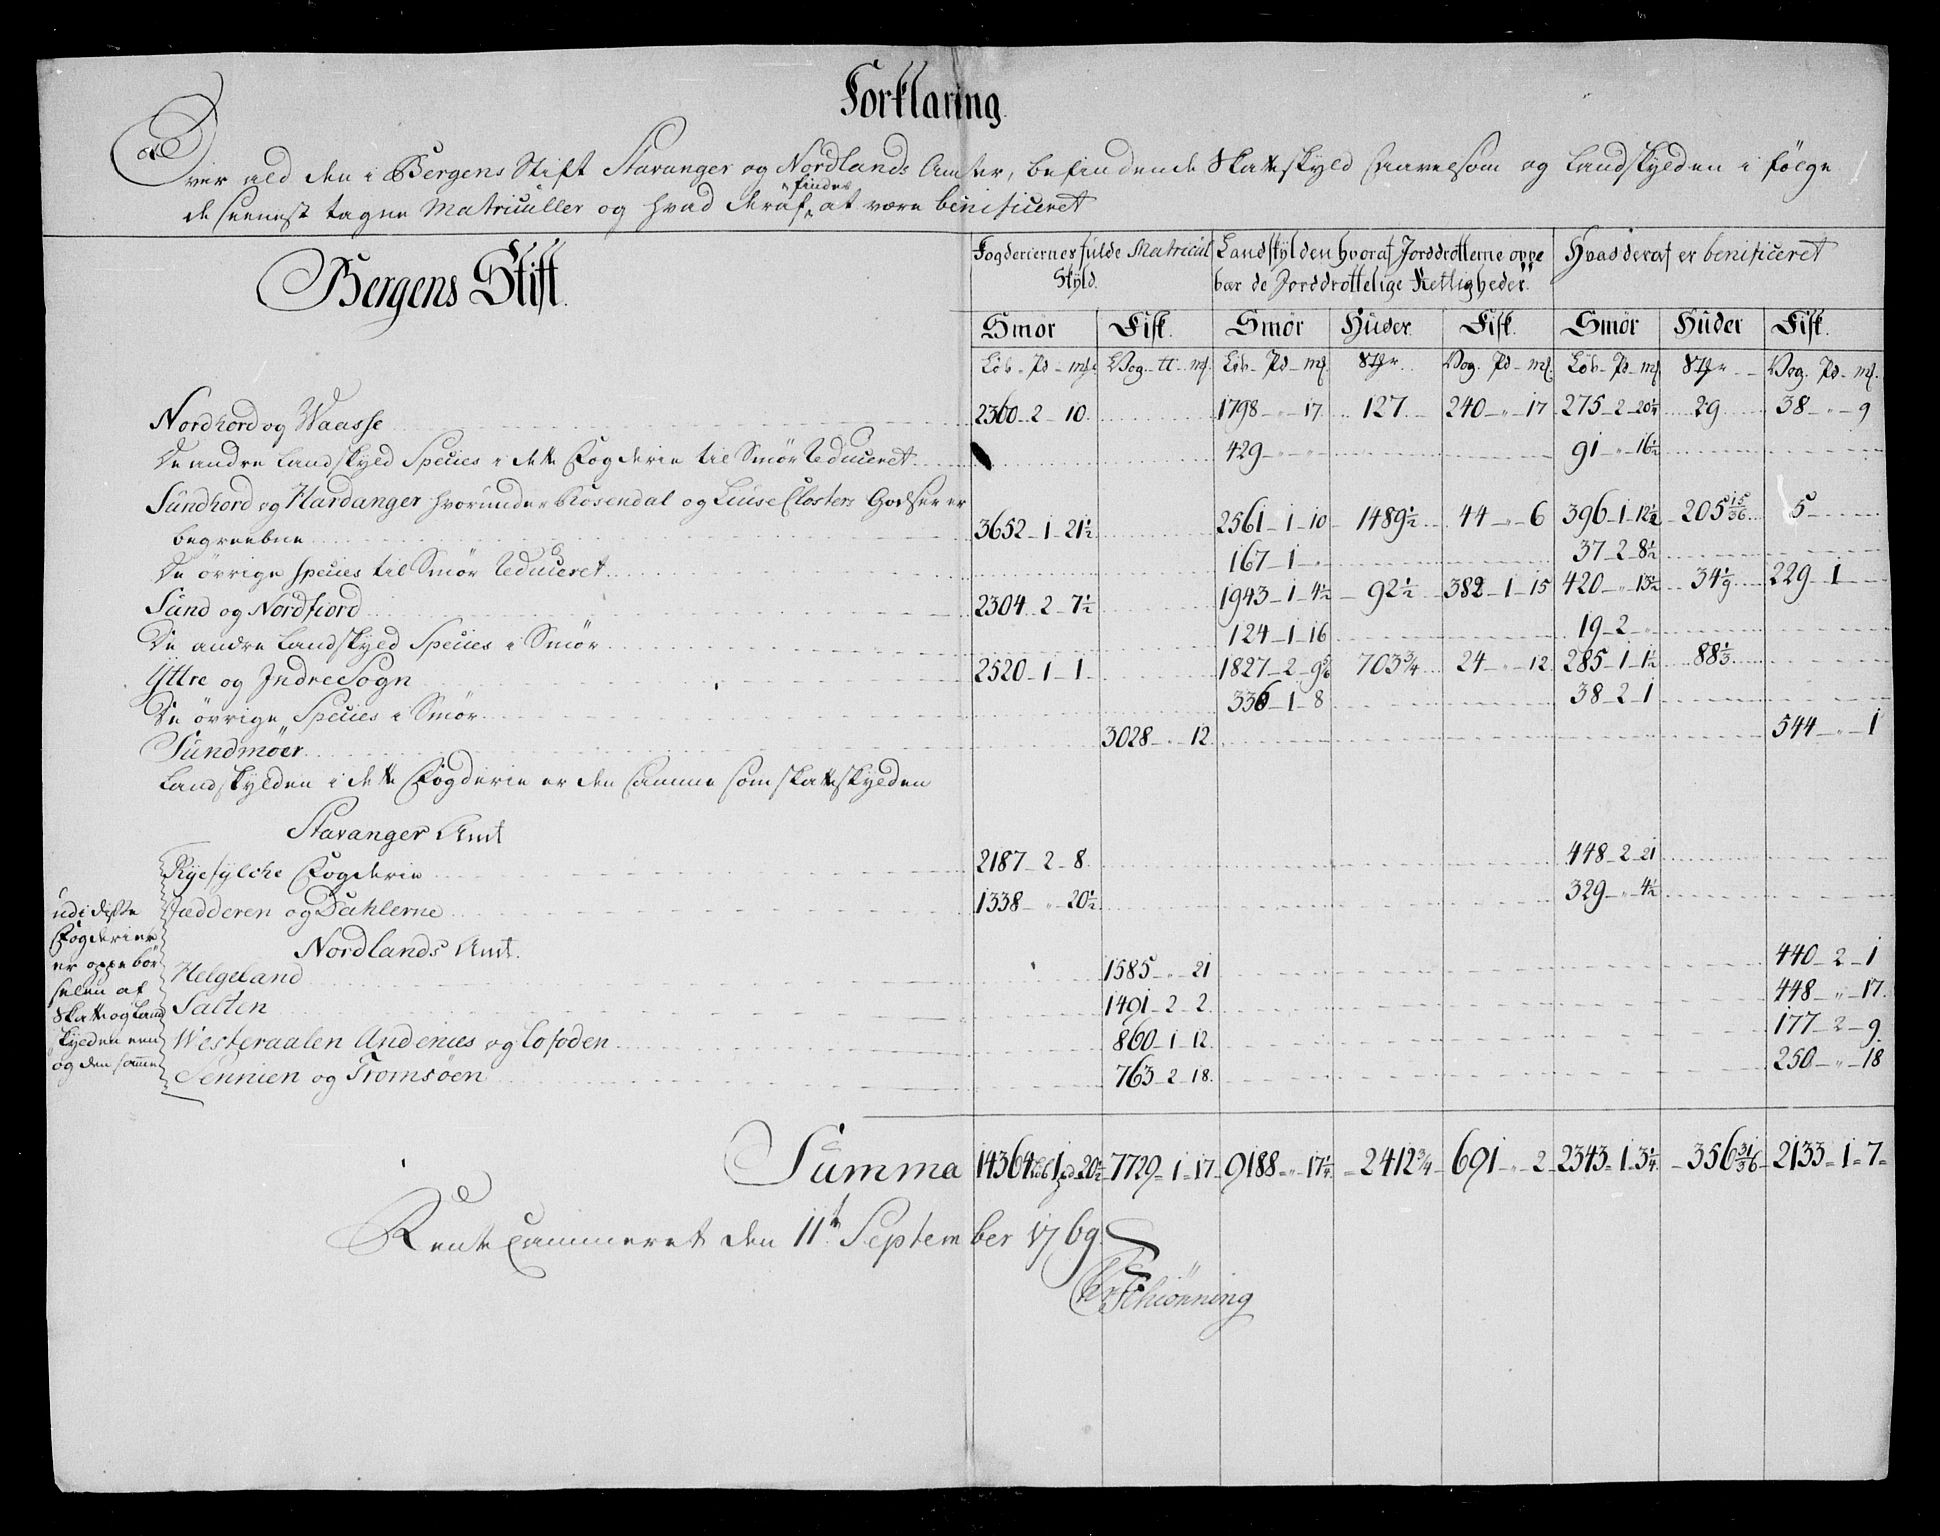 Forklaring
Over ald den i Bergens Stift Stavanger og Nordlands Amter, befindende Skatteskyld saavelsom og Landskylden i følge
de seenest tagne Matriculler og hvad deraf findes at være benificeret
Bergens Stift.
Fogderiernes fulde Matricul Skyld. Landskylden hvoraf Jorddrotterne oppebær de Jorddrottelige Rettigheder. Hvad deraf er benificeret
Smør Fisk. Smør Huder. Fisk. Smør Huder Fisk.
Løb - Pd - mk. Vog - tt - mk. Løb - Pd - mk Vog. Pd - mk. Løb - Pd - mk Vog. Pd - mk.
Nordhord og Waasse 2360 - 2 - 10 1798 - " - 17 127 240 - " - 17 275 - 2 - 20¼ 29 38 - " - 9
De andre Landskyld Species i dette Fogderie til Smør reduceret 429 - " - " 91 - " - 16½
Sundhord og Hardanger hvorunder Rosendal og Liuse Closters Godser er
begreebne 3652 - 1 - 21½ 2561 - 1 - 10 1489½ 44 - " - 6 396 - 1 - 12½ 205 15/36 5
De øvrige species til Smør reduceret 167 - 1 - " 37 - 2 - 8½
Sund og Nordfiord 2304 - 2 - 7½ 1943 - 1 - 4½ 92½ 382 - 1 - 15 420 - " - 13½ 34 1/9 229 - 1
De andre Landskyld Species i Smør 124 - 1 - 16 19 - 2 - "
Yttre og Indre Sogn 2520 - 1 - 1 1827 - 2 - 9 5/6 703¾ 24 - " - 12 285 - 1 - 1½ 88⅓
De øvrige Species i Smør 336 - 1 - 8 38 - 2 - 1
Sundmöer 3028 - " - 12 544 - " - 1
Landskylden i dette Fogderie er den samme som skatteskylden
Stavanger Amt
Ryefylche Fogderie 2187 - 2 - 8 448 - 2 - 21
Jædderen og Dahlerne 1338 - " - 20½ 329 - " - 4½
Nordlands Amt.
Helgeland 1585 - " - 21 440 - 2 - 1
Salten 1491 - 2 - 2 448 - " - 17.
Westeraalen Andenies og Lofoden 860 - 1 - 12 177 - 2 - 9
Sennien og Tromsøen 763 - 2 - 18. 250 - " - 18
udi disse
Fogderier
er oppebør
selen af
Skatte og Land
skylden een
og den samme
Summa 14364 Løb 1 pd - 20½ 7729 - 1 - 17 9188 - " - 17¼ 2412¾ 691 - " - 2 2343 - 1 - 3¼ 356 31/36 2133 - 1 - 7
Rente Cammeret den 11te September 1769
Schiønning